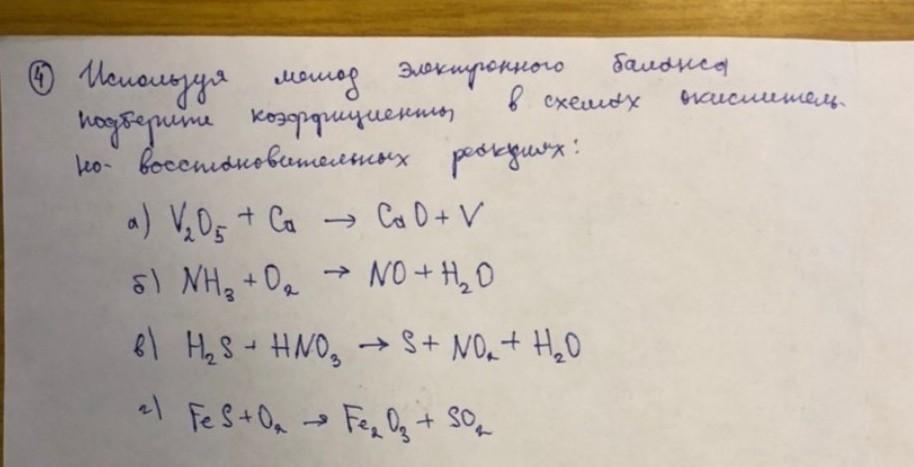 ④ Используя метод электронного баланса
подберите коэффициенты в схемах окислитель-
но-восстановительных реакциях:
а) V₂O₅ + Ca → CaO + V
б) NH₃ + O₂ → NO + H₂O
в) H₂S + HNO₃ → S + NO₂ + H₂O
г) FeS + O₂ → Fe₂O₃ + SO₂